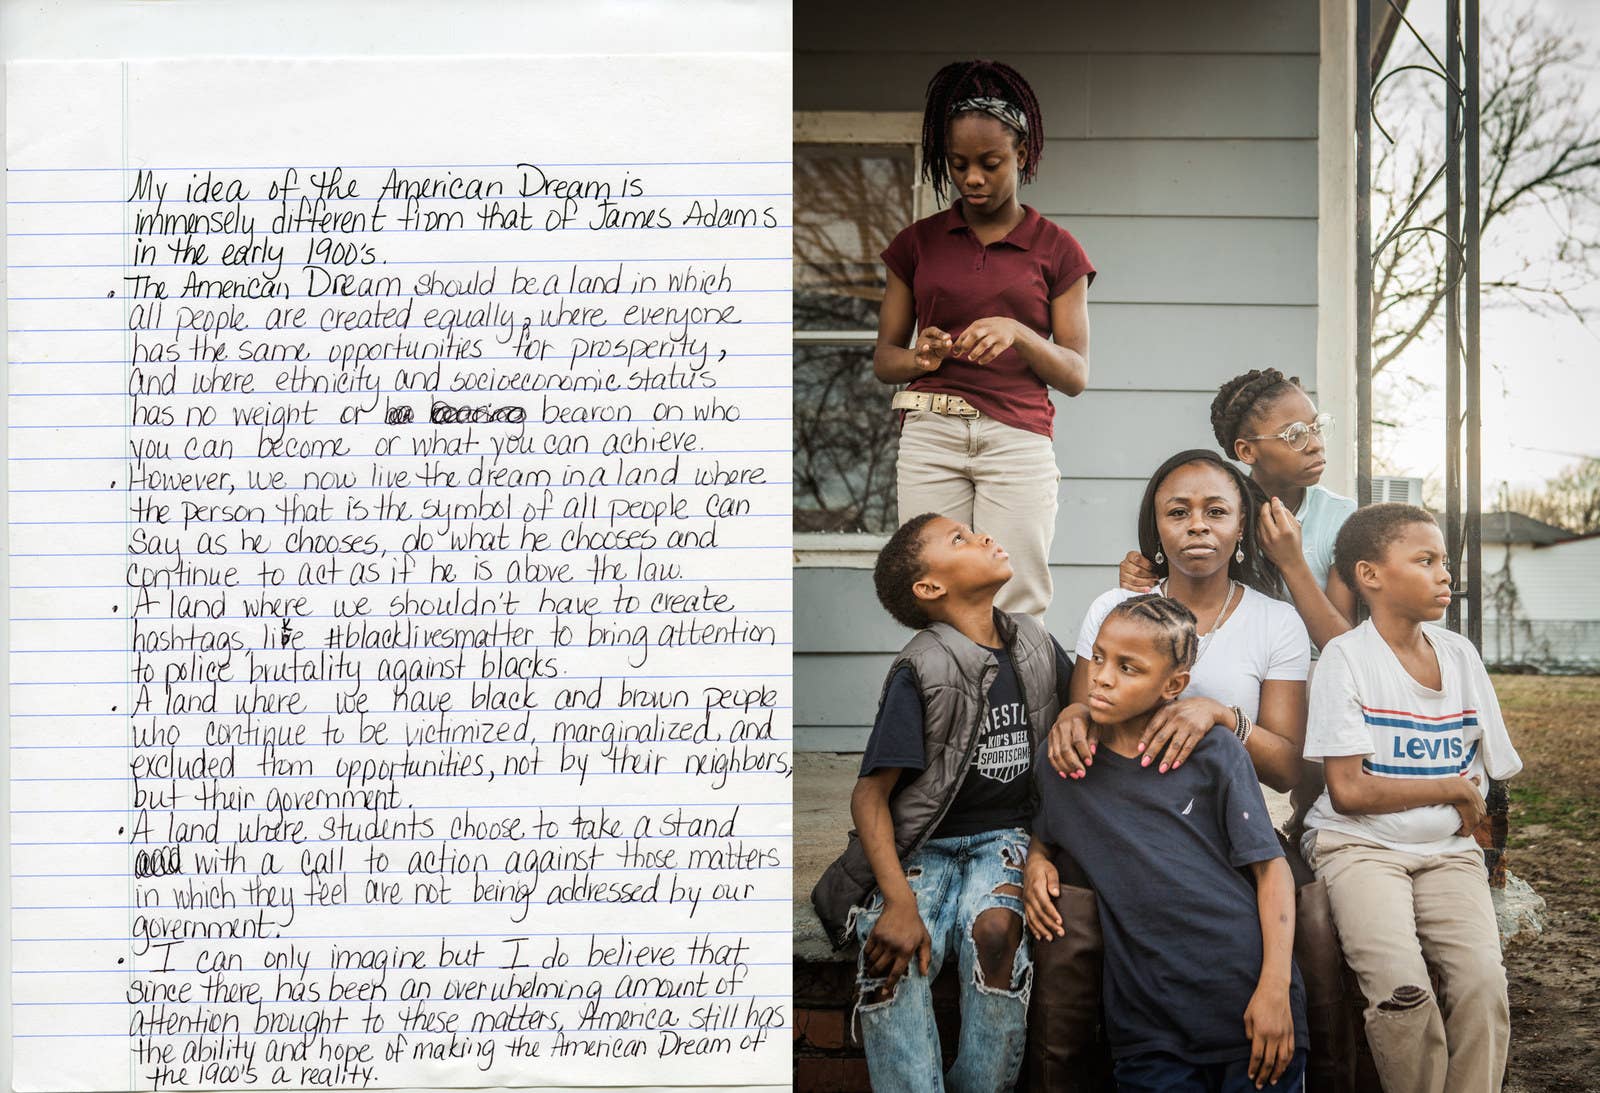 My idea of the American Dream is
immensely different from that of James Adams
in the early 1900's.
. The American Dream should be a land in which
all people are created equally, where everyone
has the same opportunities for prosperity,
and where ethnicity and socioeconomic status
has no weight or bearon on who
you can become or what you can achieve.
. However, we now live the dream in a land where
the person that is the symbol of all people can
say as he chooses, do what he chooses and
continue to act as if he is above the law.
. A land where we shouldn't have to create
hashtags, like #blacklivesmatter to bring attention
to police brutality against blacks.
. A land where we have black and brown people
who continue to be victimized, marginalized, and
excluded from opportunities, not by their neighbors,
but their government.
. A land where students choose to take a stand
with a call to action against those matters
in which they feel are not being addressed by our
government.
. I can only imagine but I do believe that
since there has been an overwhelming amount of
attention brought to these matters, America still has
the ability and hope of making the American Dream of
the 1900's a reality.
KID'S WEEK
SPORTS CAMP
LEVI'S